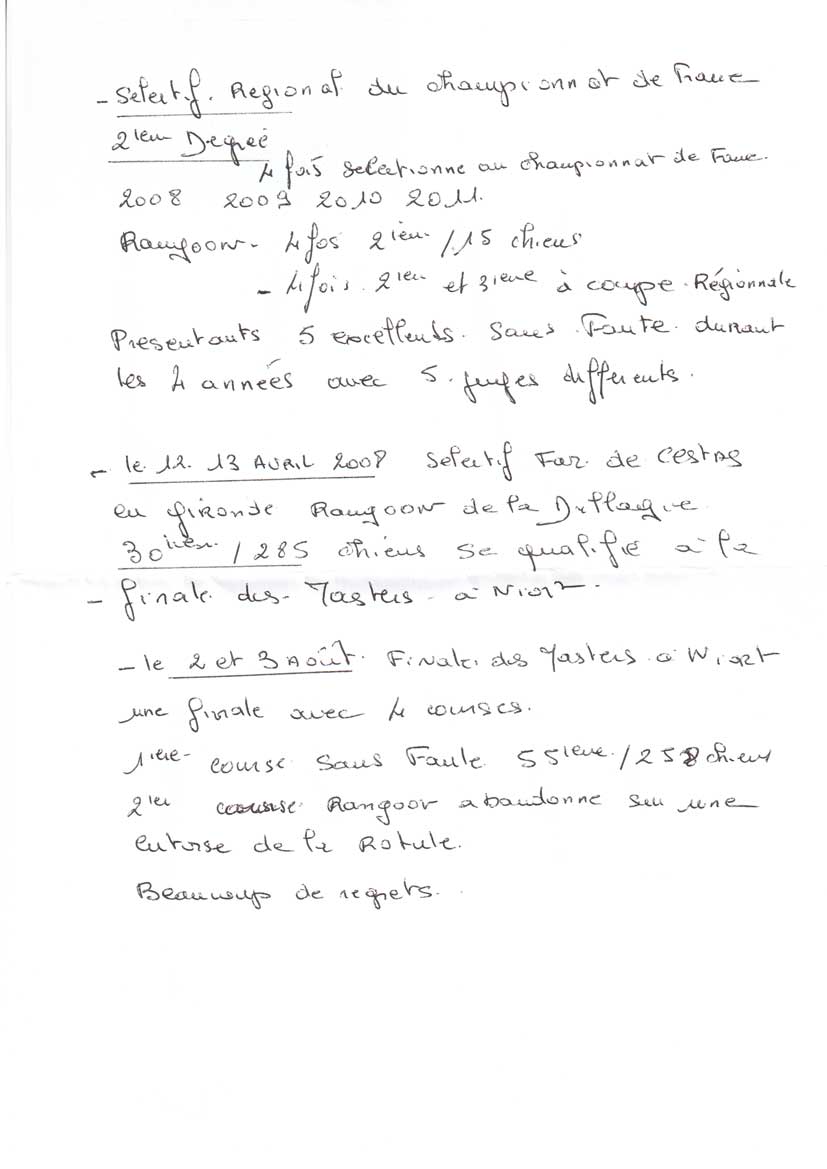 - Selectif. Regional du championnat de France
2ieм Degreé
4 fois selectionne au championnat de France.
2008 2009 2010 2011.
Rangoon - 4 fos 2ièm / 15 chiens
- 4 fois. 2ieм et 3ieme à coupe. Régionnale
Presentants 5 excellents. Sans. Faute. durant
les 4 années avec 5. juges differents.
- le. 12. 13 AVRIL 2008 Selectif Far. de Cestas
en Gironde Rangoon de la
30ièm / 285 chiens se qualifie à la
- finale des - Masters - à Niort.
- le 2 et 3 Août. Finale. des Masters. à Niort
une finale avec 4 courses.
1ière course Sans Faute 55ieme / 258 chiens
2ieм course. Rangoon abandonne sur une
entorse de la Rotule.
Beaucoup de regrets.